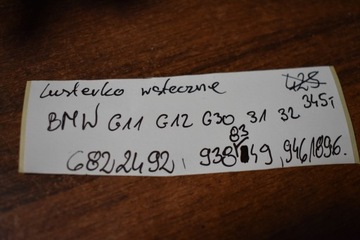 Lusterko wsteczne 425
345,-
BMW G11 G12 G30 31 32
83
6822492, 938149, 9461896.